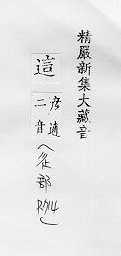 精嚴新集大藏音
這
彦適
二音
(辵部